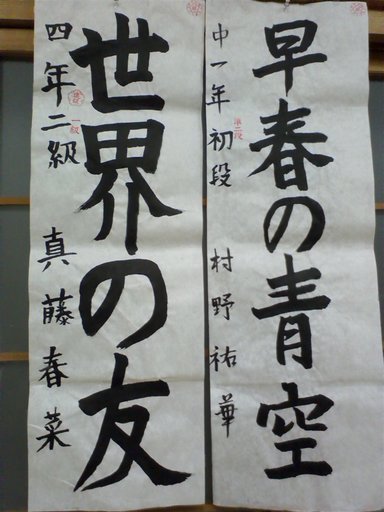 早春の青空
中一年 初段 村野祐華
準二段
世界の友
四年二級 真藤春菜
一級